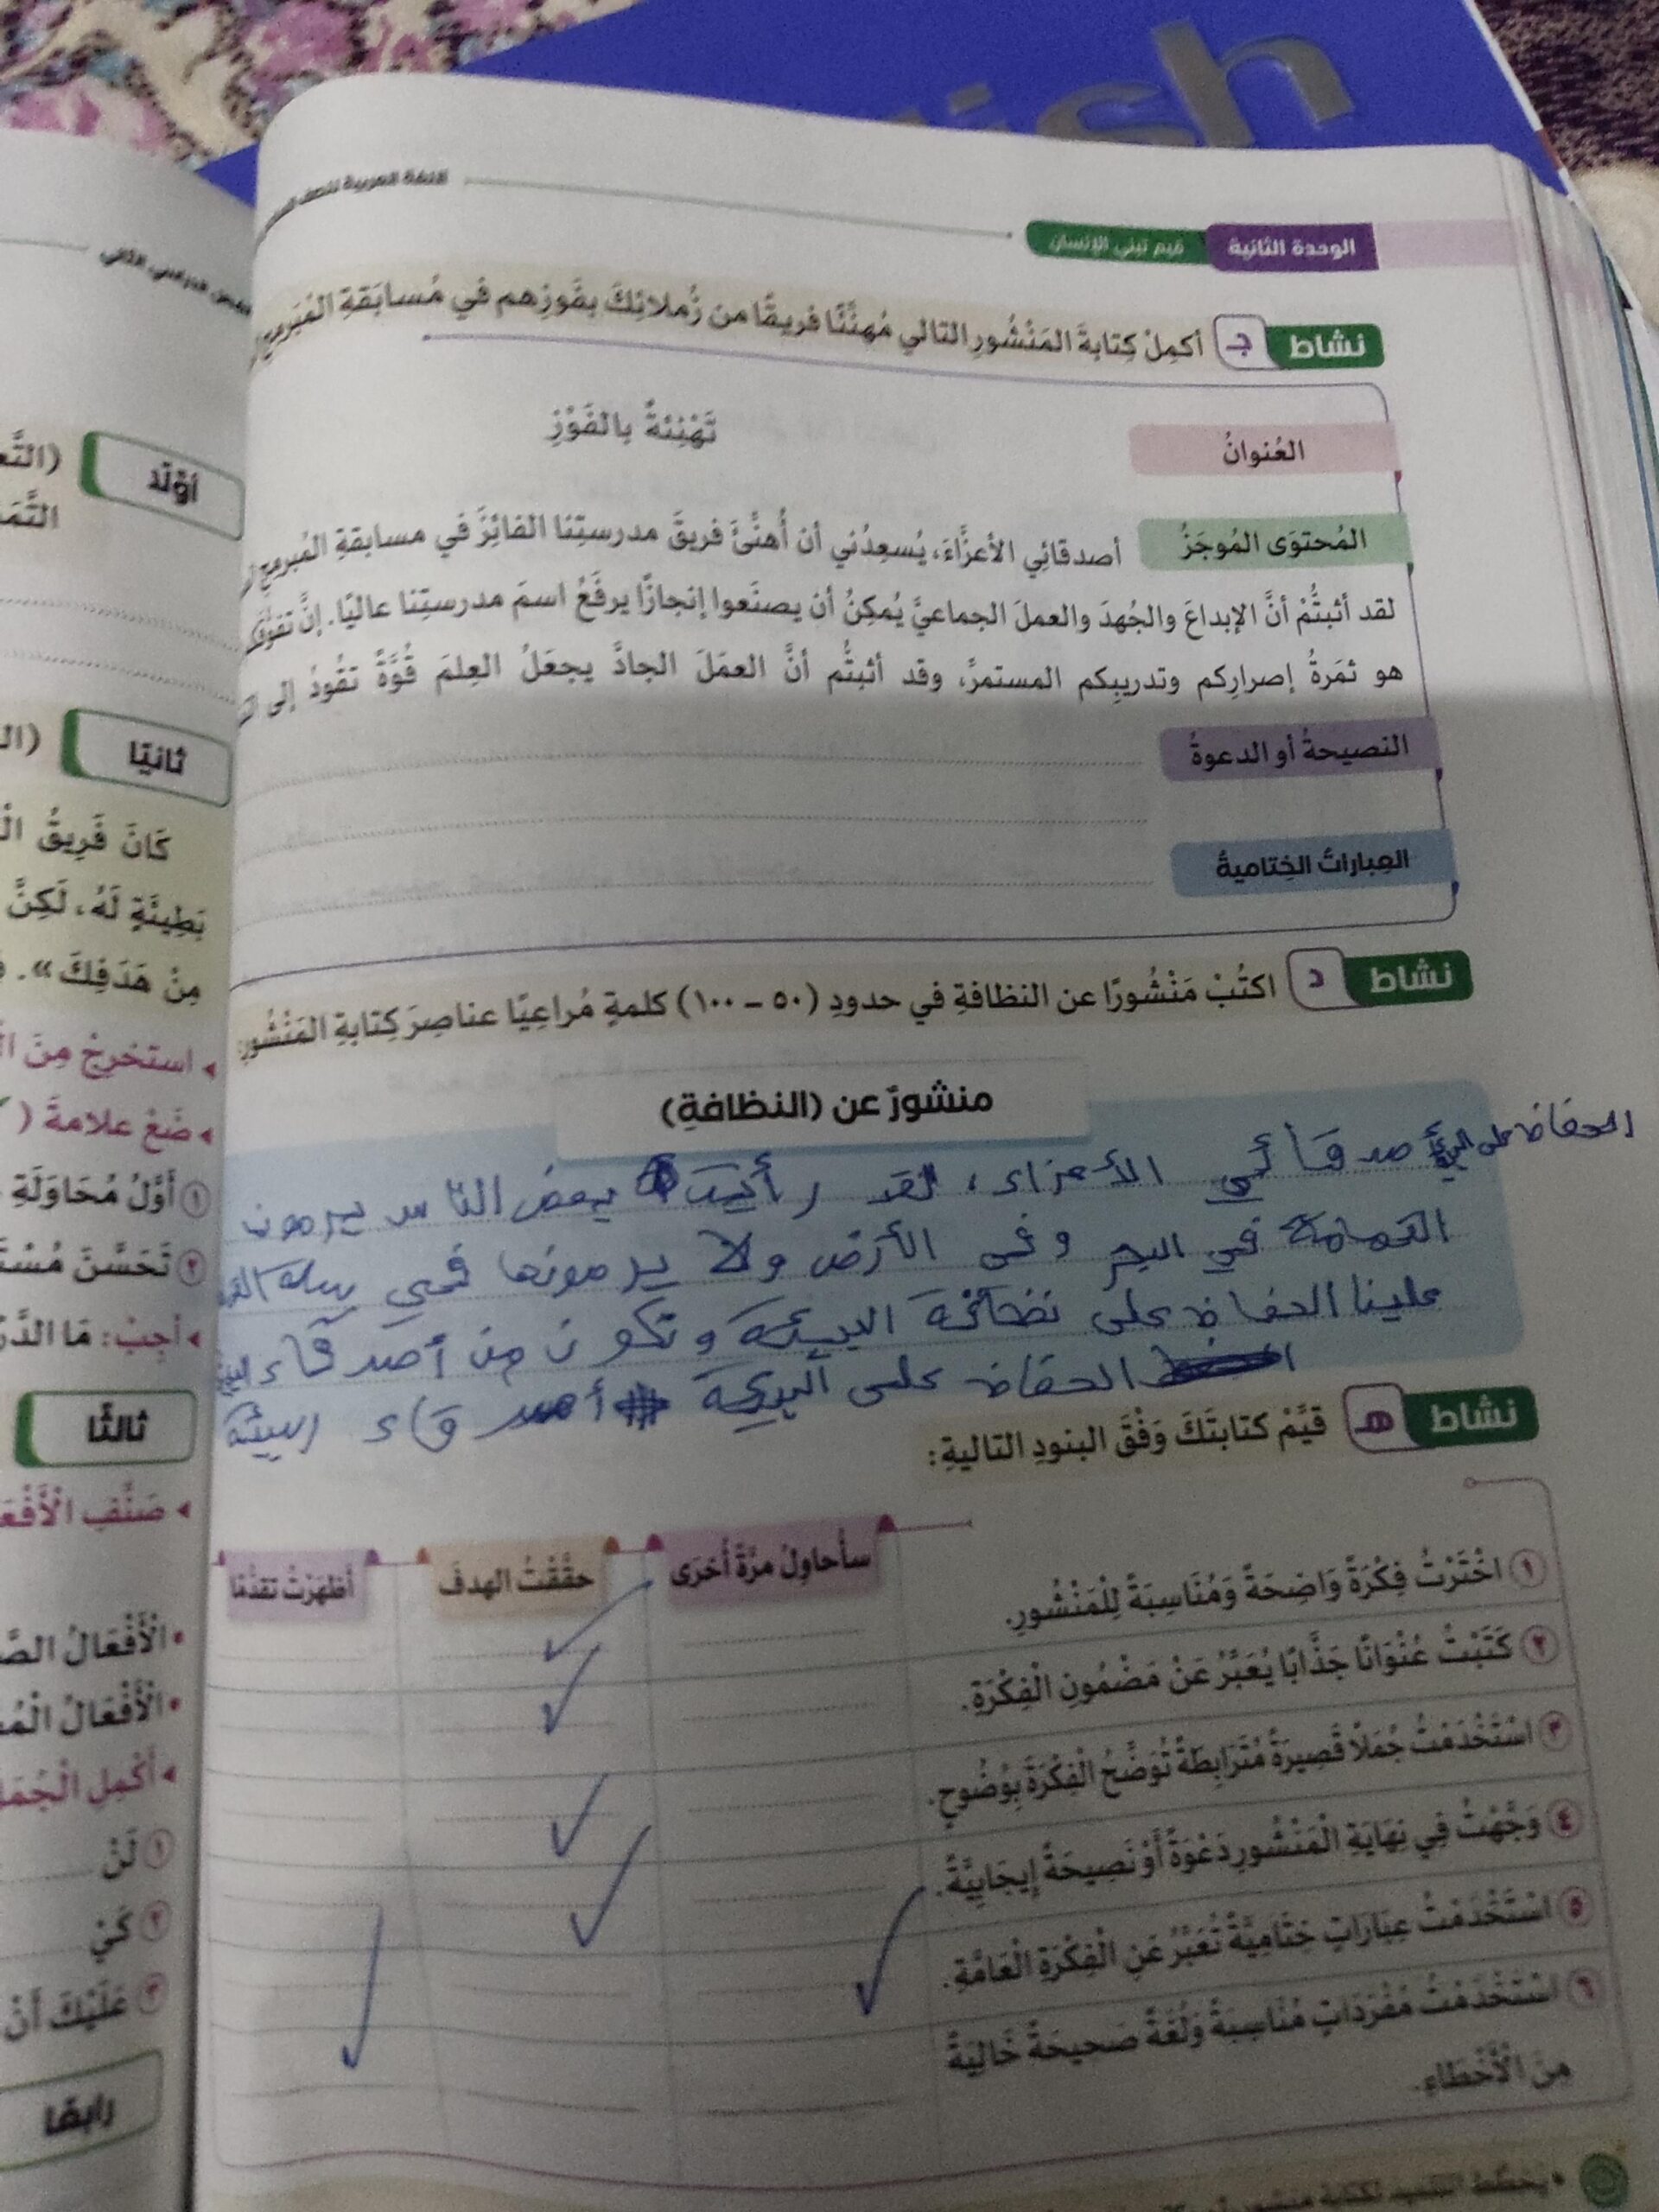 ish
اللغة العربية للصف
الوحدة الثانية قيم تبني الإنسان
نشاط جـ أكمِلْ كِتابةَ المَنْشُورِ التالي مُهنِّئًا فريقًا من زُملائِكَ بفَوزِهم في مُسابَقةِ المُبَرمِجِ
العُنوانُ تَهْنِئةٌ بالفَوْزِ
المُحتوَى المُوجَزُ أصدقائِي الأعزَّاءَ، يُسعِدُني أن أُهنِّئَ فريقَ مدرستِنا الفائِزَ في مسابقةِ المُبرمِجِ
لقد أثبتُّمْ أنَّ الإبداعَ والجُهدَ والعملَ الجماعيَّ يُمكِنُ أن يصنَعوا إنجازًا يرفَعُ اسمَ مدرستِنا عاليًا. إنَّ
هو ثمَرةُ إصرارِكم وتدريبِكم المستمرِّ، وقد أثبتُّم أنَّ العمَلَ الجادَّ يجعَلُ العِلمَ قُوَّةً تقُودُ إلى
النصيحةُ أو الدعوةُ
العِباراتُ الخِتاميةُ
نشاط د اكتُبْ مَنْشُورًا عن النظافةِ في حدودِ (٥٠ – ١٠٠) كلمةٍ مُراعِيًا عناصِرَ كِتابةِ المَنْشُورِ:
منشورٌ عن (النظافةِ)
الحفاظ على
أصدقائي الأعزاء، لقد رأيت بعض الناس يرمون
القمامة في البحر وفى الأرض ولا يرمونها في سلة
علينا الحفاظ على نظافة البيئة وتكون من أصدقاء
الحفاظ على البيئة أصدقاء البيئة
نشاط هـ قيِّمْ كتابتَكَ وَفْقَ البنودِ التاليةِ:
سأحاوِلُ مرَّةً أُخرَى حقَّقْتُ الهدفَ أظهَرْتُ تقدُّمًا
١ اخْتَرْتُ فِكْرَةً وَاضِحَةً وَمُنَاسِبَةً لِلْمَنْشُورِ.
٢ كَتَبْتُ عُنْوَانًا جَذَّابًا يُعَبِّرُ عَنْ مَضْمُونِ الْفِكْرَةِ.
٣ اسْتَخْدَمْتُ جُمَلًا قَصِيرَةً مُتَرَابِطَةً تُوَضِّحُ الْفِكْرَةَ بِوُضُوحٍ.
٤ وَجَّهْتُ فِي نِهَايَةِ الْمَنْشُورِ دَعْوَةً أَوْ نَصِيحَةً إِيجَابِيَّةً.
٥ اسْتَخْدَمْتُ عِبَارَاتٍ خِتَامِيَّةً تُعَبِّرُ عَنِ الْفِكْرَةِ الْعَامَّةِ.
٦ اسْتَخْدَمْتُ مُفْرَدَاتٍ مُنَاسِبَةً وَلُغَةً صَحِيحَةً خَالِيَةً
مِنَ الْأَخْطَاءِ.
الدراسي الثاني
أوَّلًا
ثانيًا
كَانَ فَرِيقُ
بَطِيئَةٍ لَهُ، لَكِنَّ
مِنْ هَدَفِكَ».
استخرِجْ مِنَ
ضَعْ علامةَ (
١ أَوَّلُ مُحَاوَلَةٍ
٢ تَحَسَّنَ
أجِبْ: مَا
ثالثًا
صَنِّفِ
الْأَفْعَالُ
الْأَفْعَالُ
أَكْمِلِ
١ لَنْ
٢ كَيْ
٣ عَلَيْكَ أَنْ
رابعًا